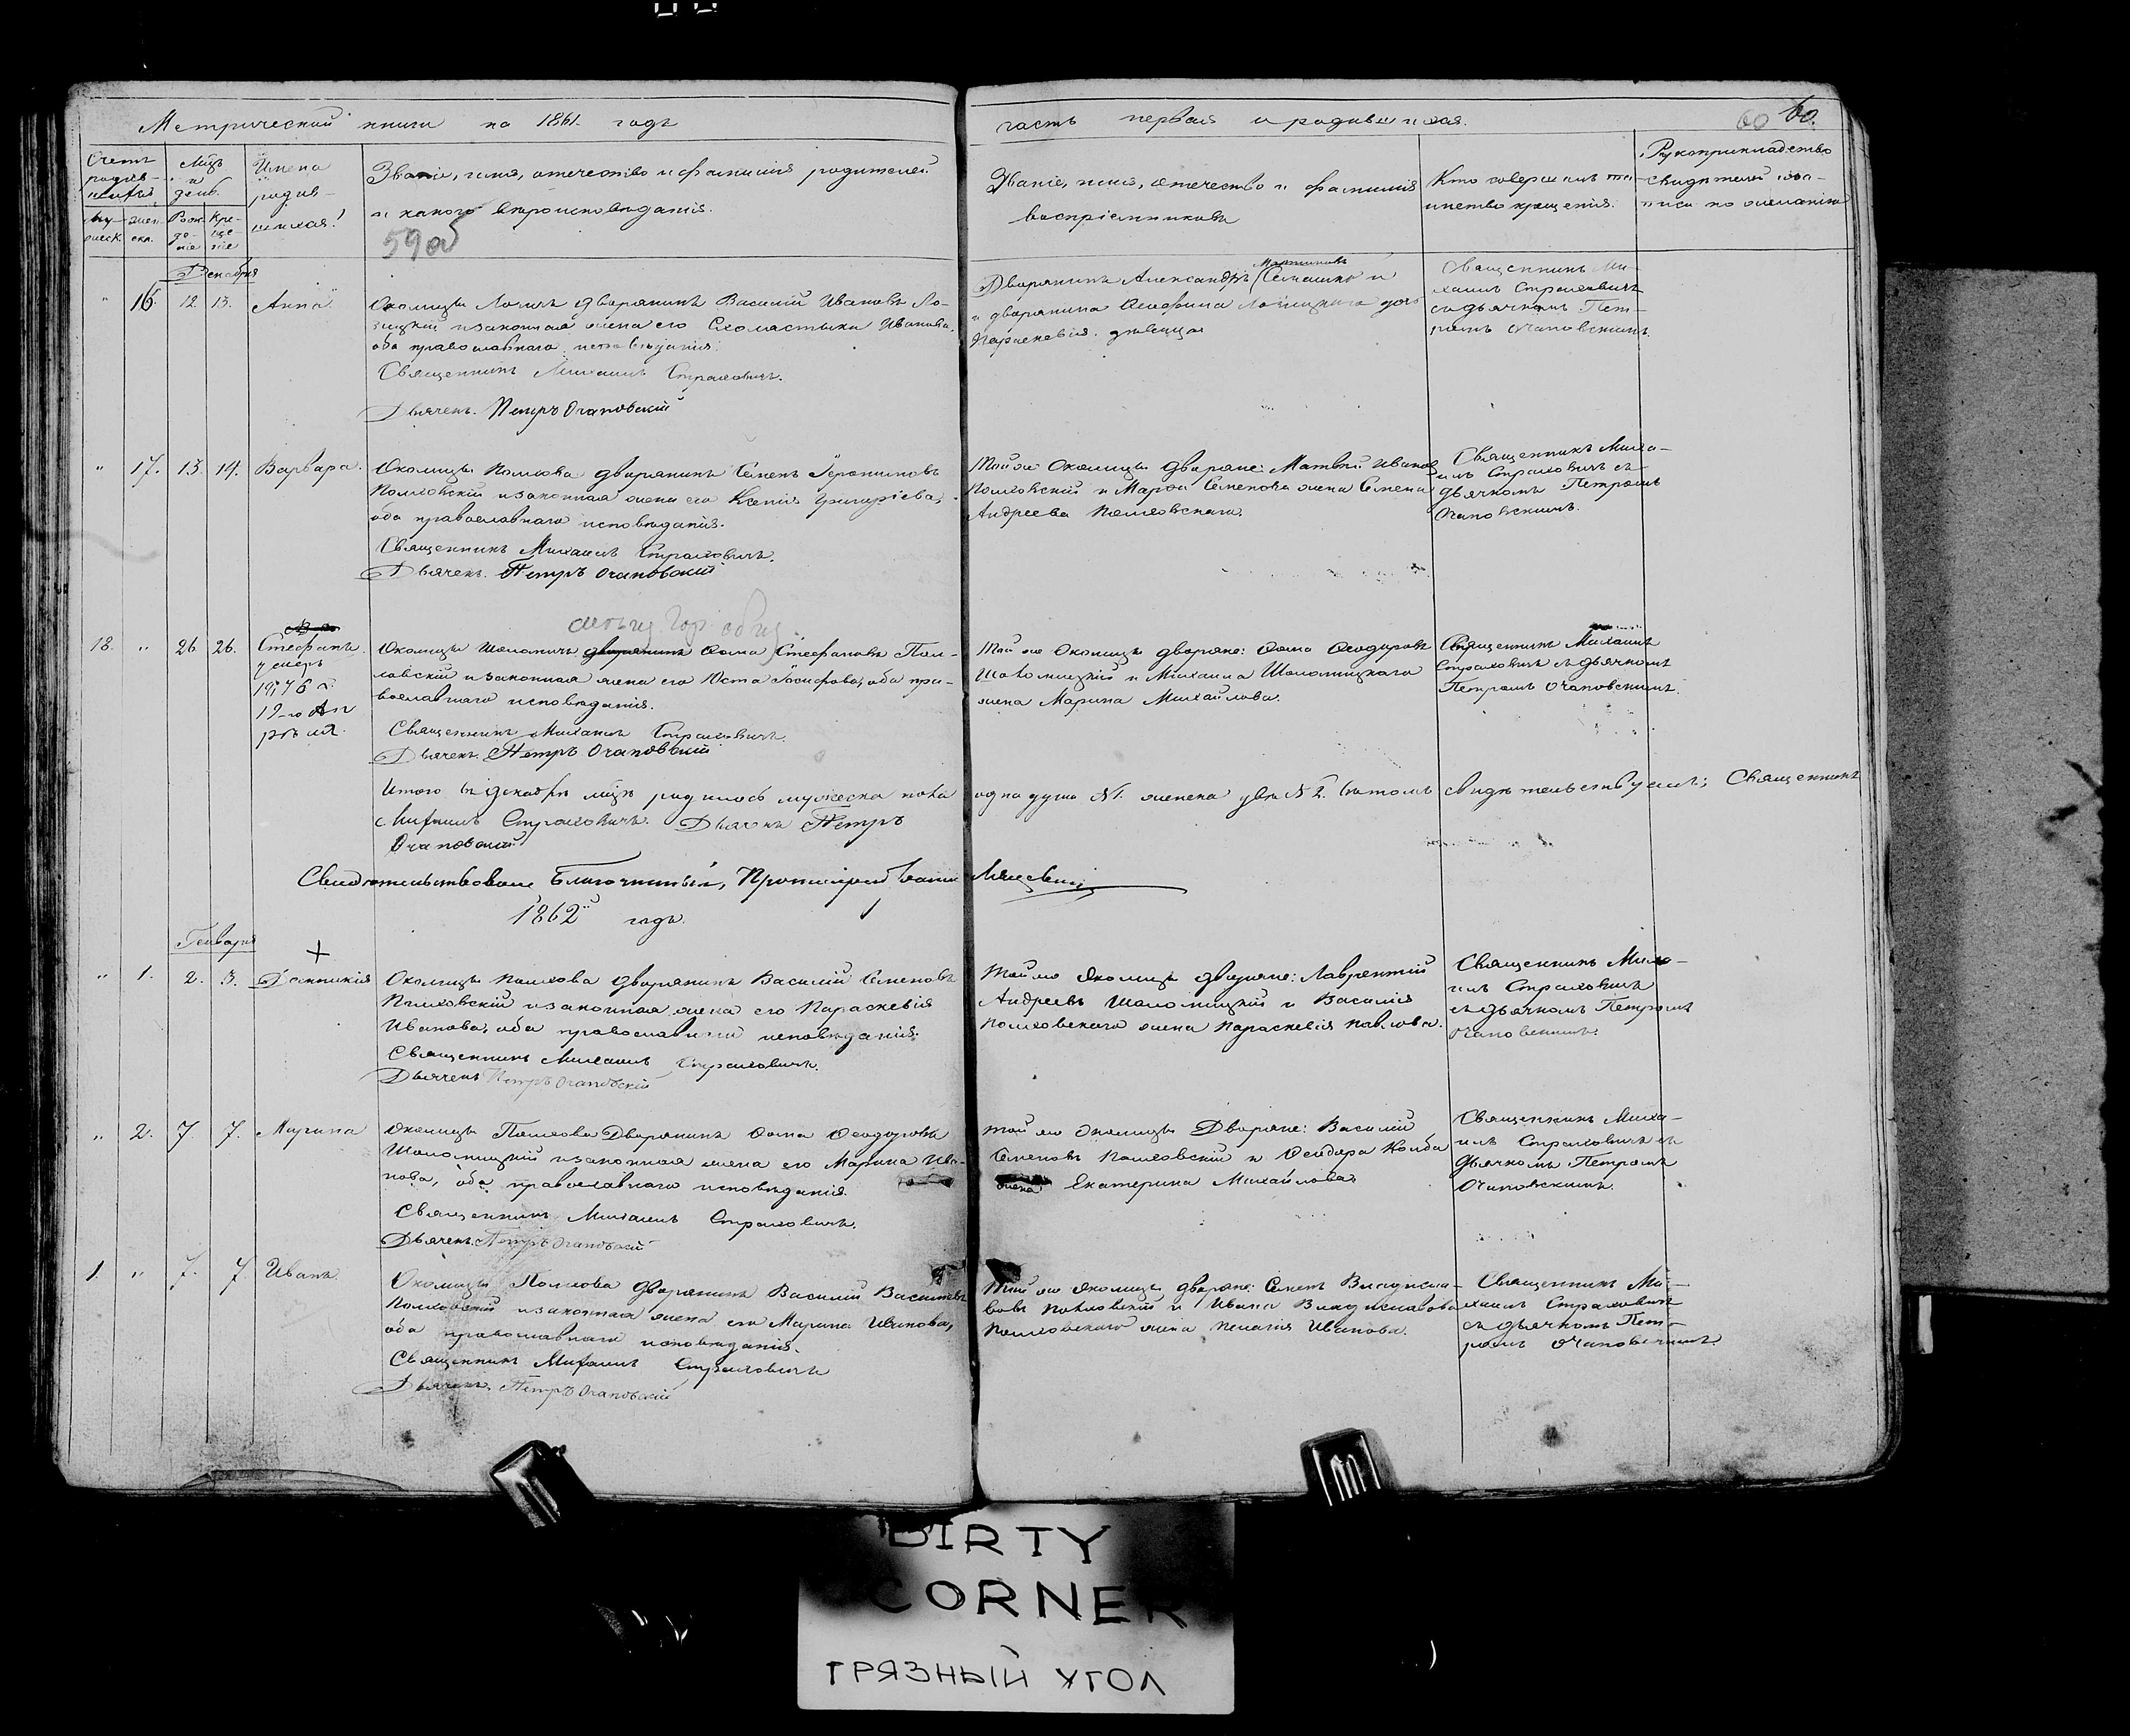 Метрической книги на 1861. годъ
часть первая о родившихся.
60 60.
Счетъ
родив-
шихся
Мцъ
и
день.
Имена
родив-
шихся
Званіе, имя, отечество и фамилія родителей
и какого вероисповѣданія.
Званіе, имя, отечество и фамилія
воспріемниковъ
Кто совершалъ та-
инство крещенія.
Рукоприкладство
свидѣтелей
по желанію
Му-
жеск.
жен-
ска.
Рож-
де-
ніе
Кре-
ще-
ніе
59 об
Декабря
" 16. 12 13. Анна
Околицы дворянинъ Василій Ивановъ Ло-
зицкій и законная жена его Схоластыка Иванова,
оба православнаго исповѣданія.
Священникъ Михаилъ Страховичъ.
Дьячекъ. Петръ Очаповскій
Дворянинъ Александръ Семашко и
дворянина Лозицкого дочь
Параскевія. дѣвица
Священникъ Ми-
хаилъ Страховичъ
съ дьячкомъ Пет-
ромъ Очаповскимъ.
" 17. 13. 14. Варвара.
Околицы Полхова дворянинъ Семенъ Іеронимовъ
Полховскій и законная жена его Ксенія Григоріева,
оба православнаго исповѣданія.
Священникъ Михаилъ Страховичъ.
Дьячекъ. Петръ Очаповскій
Той же Околицы дворяне: Матвѣй Иванов
Полховскій и Марѳа Семенова жена Семена
Андреева Полховскаго.
Священникъ Миха-
илъ Страховичъ съ
дьячкомъ Петромъ
Очаповскимъ.
18. " 26 26. Стефанъ.
умеръ
19-го Ап
рѣля.
Околицы Шоломичъ дворянинъ Ѳома Стефановъ Пол-
ховскій и законная жена его Юста Іосифова, оба пра-
вославнаго исповѣданія.
Священникъ Михаилъ Страховичъ.
Дьячекъ. Петръ Очаповскій
Той же Околицы дворяне: Ѳома Ѳеодоровъ
Шоломицкій и Михаила Шоломицкаго
жена Марина Михайлова.
Священникъ Михаилъ
Страховичъ съ дьячкомъ
Петромъ Очаповскимъ.
Итого въ декабрѣ мцѣ родилось мужеска пола
одна душа № 1. женска двѣ № 2. Въ томъ свидѣтельствуемъ; Священникъ
Михаилъ Страховичъ. Дьячекъ Петръ
Очаповскій
Свидѣтельствовалъ Благочинный, Протоіерей Іоаннъ
1862й годъ.
Генваря
" 1. 2. 3. Домникія
Околицы Полхова дворянинъ Василій Семеновъ
Полховскій и законная жена его Параскевія
Иванова, оба православнаго исповѣданія.
Священникъ Михаилъ Страховичъ.
Дьячекъ Петръ Очаповскій
Той же Околицы дворяне: Лаврентій
Андреевъ Шоломицкій и Василія
Полховскаго жена Параскевія Павлова.
Священникъ Миха-
илъ Страховичъ
съ дьячкомъ Петромъ
Очаповскимъ.
" 2. 7. 7. Марина
Околицы Полхова Дворянинъ Ѳома Ѳеодоровъ
Шоломицкій и законная жена его Марина Ива-
нова, оба православнаго исповѣданія.
Священникъ Михаилъ Страховичъ.
Дьячекъ. Петръ Очаповскій
Той же Околицы Дворяне: Василій
Семеновъ Полховскій и Ѳеодора Колба
жена Екатерина Михайлова
Священникъ Миха-
илъ Страховичъ съ
дьячкомъ Петромъ
Очаповскимъ.
1. " 7. 7. Иванъ.
Околицы Полхова дворянинъ Василій Васильевъ
Полховскій и законная жена его Марина Иванова,
оба православнаго исповѣданія.
Священникъ Михаилъ Страховичъ
Дьячекъ. Петръ Очаповскій
Той же Околицы дворяне: Семенъ Владисла-
вовъ Полховскій и Ивана Владиславова
Полховскаго жена Пелагія Иванова.
Священникъ Ми-
хаилъ Страховичъ
съ дьячкомъ Пет-
ромъ Очаповскимъ.
DIRTY
CORNER
ГРЯЗНЫЙ УГОЛ